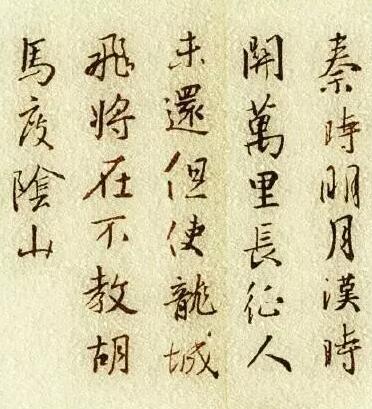 秦時明月漢時
開萬里長征人
未還但使龍城
飛將在不教胡
馬度陰山